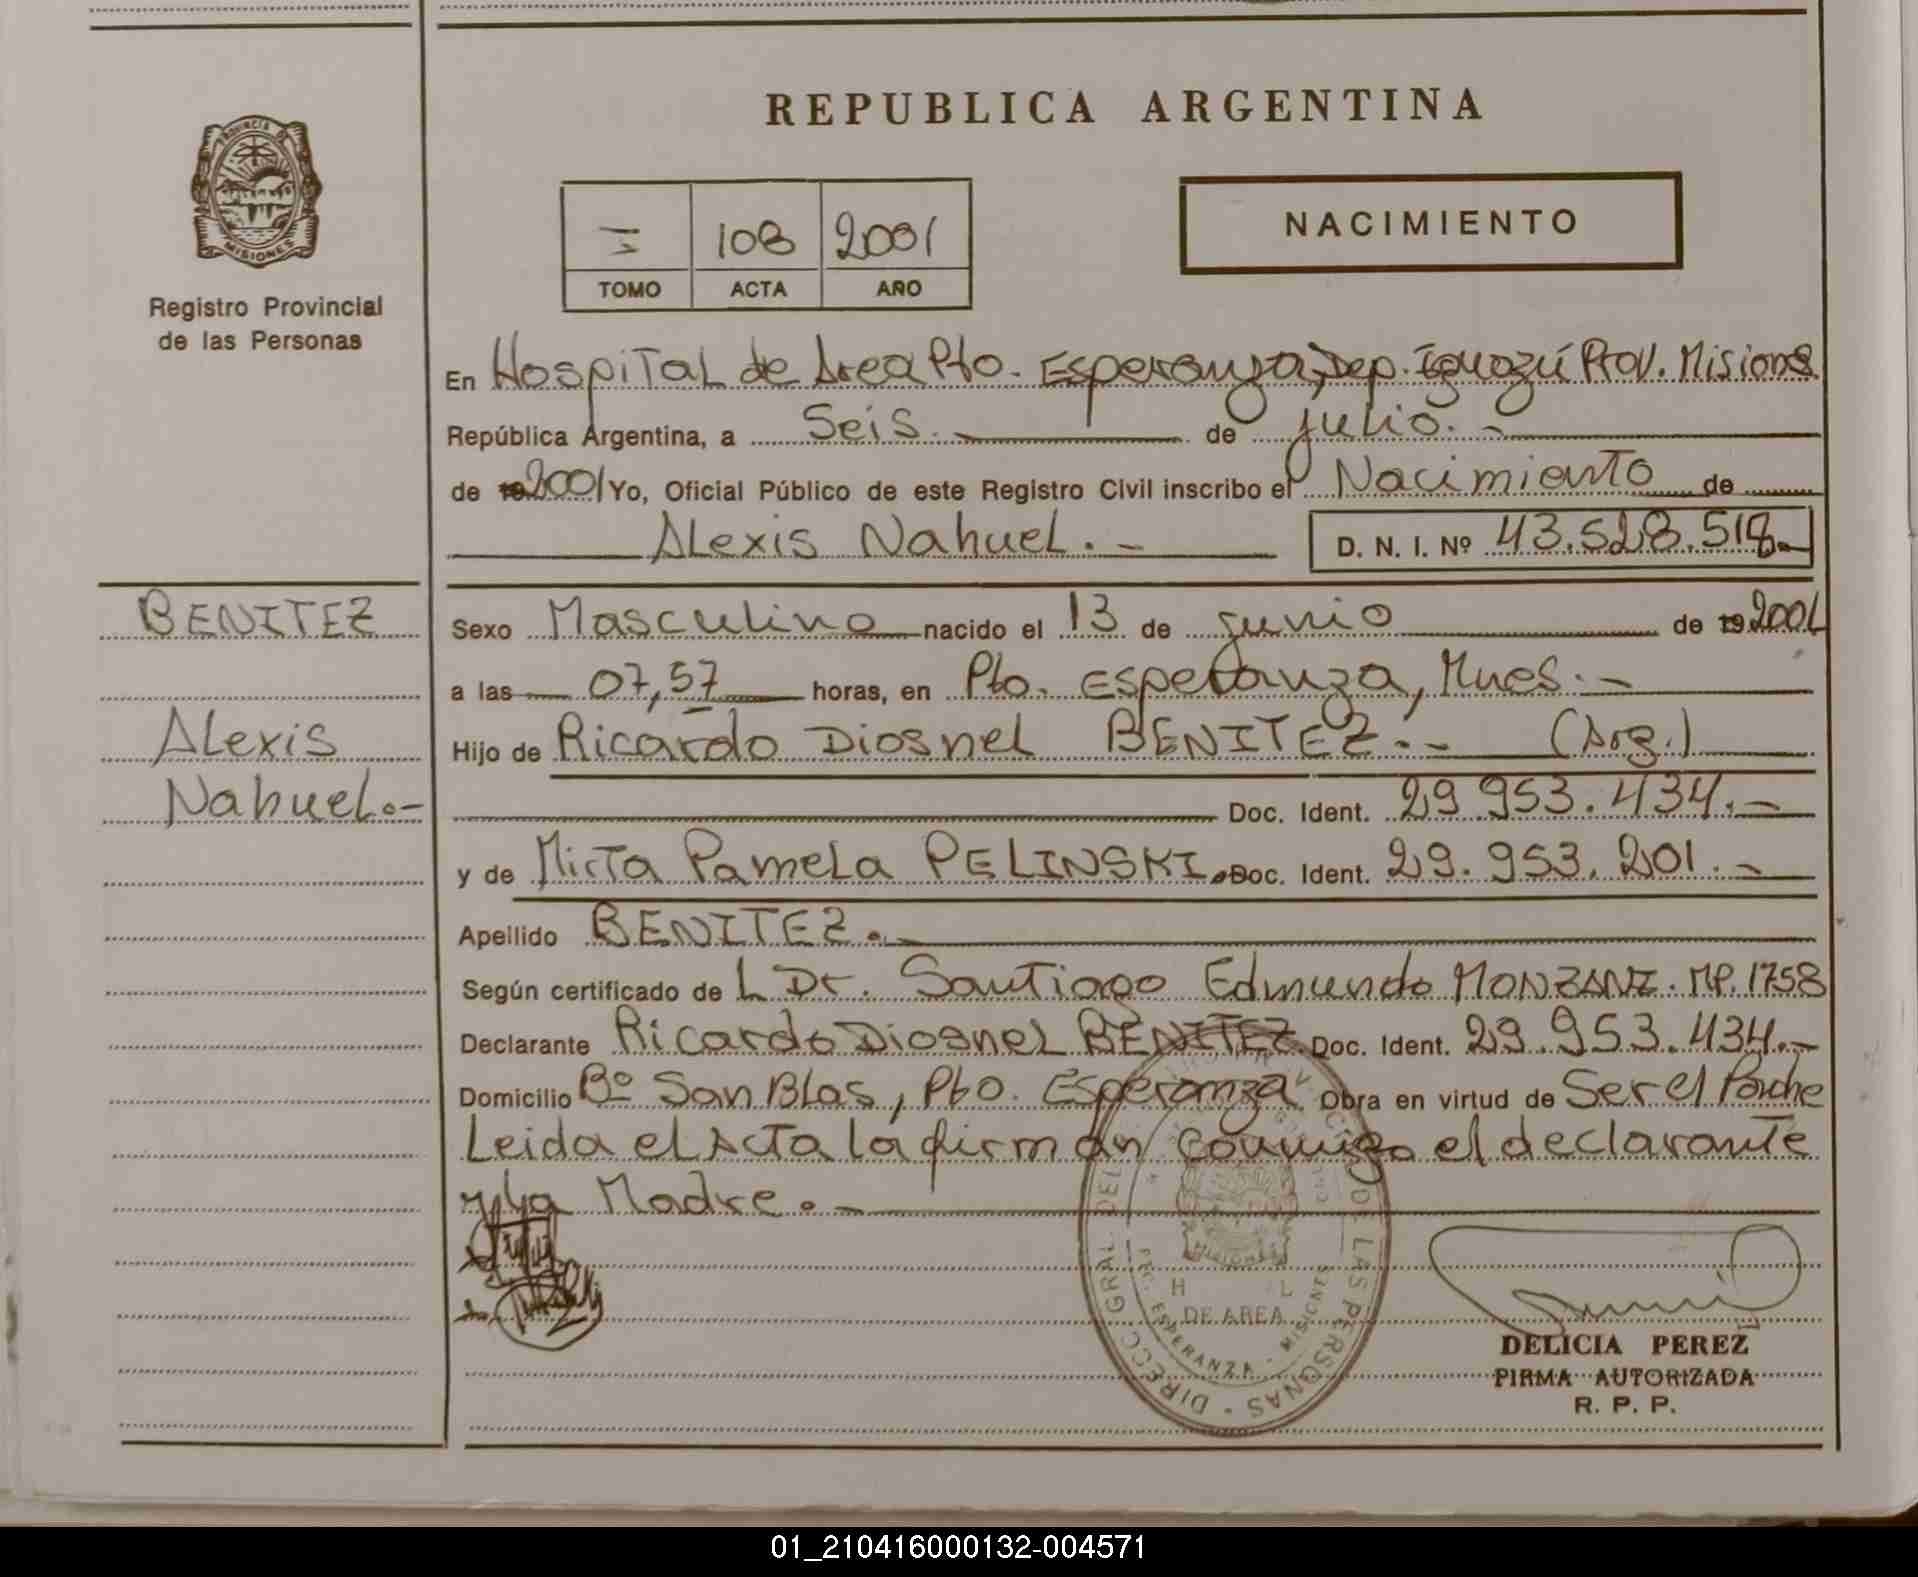 REPUBLICA ARGENTINA
PROVINCIA DE
MISIONES
Registro Provincial
de las Personas
I 108 2001
TOMO ACTA AÑO
NACIMIENTO
En Hospital de Area Pto. Esperanza, Dep. Iguazú Prov. Misiones
República Argentina, a Seis.- de julio.-
de 192001 Yo, Oficial Público de este Registro Civil inscribo el Nacimiento de
Alexis Nahuel.- D. N. I. Nº 43.528.518.-
BENITEZ
Alexis
Nahuel.-
Sexo Masculino nacido el 13 de junio de 192001
a las 07,57 horas, en Pto. Esperanza, Mnes.-
Hijo de Ricardo Diosnel BENITEZ.- (Arg.)
Doc. Ident. 29.953.434.-
y de Mirta Pamela PELINSKI. Doc. Ident. 29.953.201.-
Apellido BENITEZ.-
Según certificado de L Dr. Santiago Edmundo MONZANI. MP. 1758
Declarante Ricardo Diosnel BENITEZ. Doc. Ident. 29.953.434.-
Domicilio Bº San Blas, Pto. Esperanza Obra en virtud de Ser el Padre
Leida el Acta la firman conmigo el declarante
y la Madre.-
DIRECC. GRAL. DEL DE LAS PERSONAS
H L
DE AREA
ESPERANZA - MISIONES
DELICIA PEREZ
FIRMA AUTORIZADA
R. P. P.
01_210416000132-004571